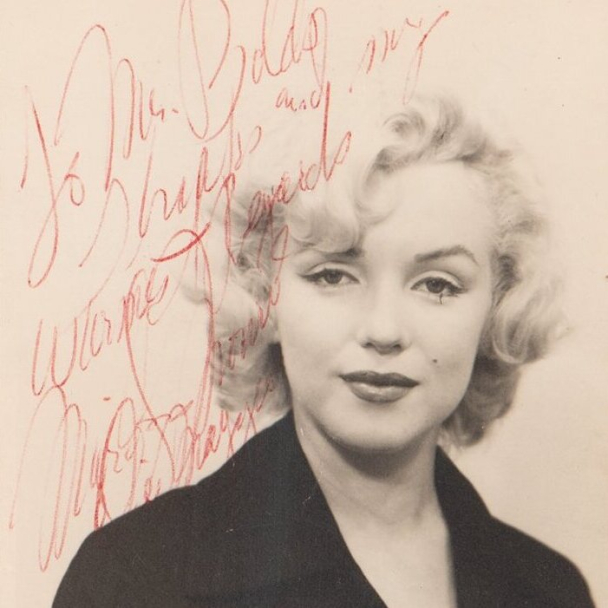 To Mr. Boldo
Thanks and my
Warmest Regards
Marilyn Monroe
DiMaggio